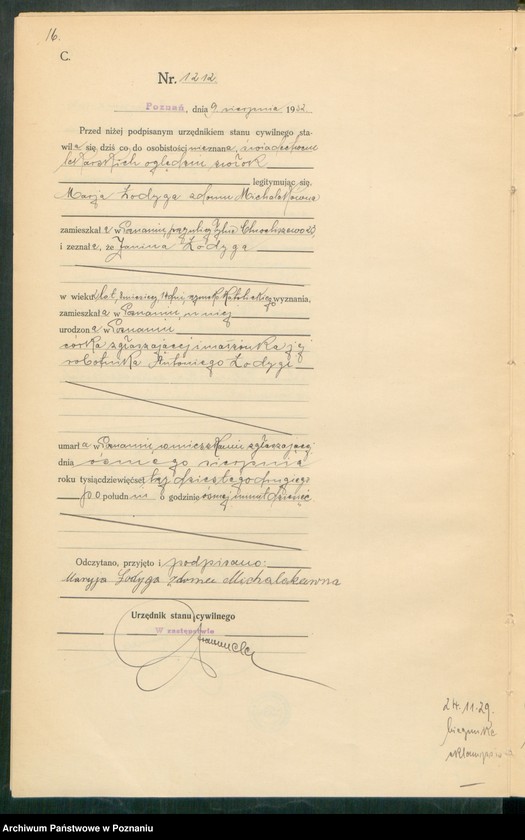 16.
C.
Nr. 1212.
Poznań, dnia 9 sierpnia 1932
Przed niżej podpisanym urzędnikiem stanu cywilnego sta-
wiła się dziś co do osobistości nieznana, świadectwem
lekarskich oględzin zwłok
legitymując się,
Marja Łodyga z domu Michalakówna
zamieszkała w Poznaniu przy ulicy
i zeznała, że Janina Łodyga
w wieku lat, miesięcy, dni, rzymsk. katolickiego wyznania,
zamieszkała w Poznaniu, u niej
urodzona w Poznaniu
córka zgłaszającej i małżonka jej
robotnika Antoniego Łodygi
umarła w Poznaniu w mieszkaniu zgłaszającej
dnia ósmego sierpnia
roku tysiąc dziewięćset trzydziestego drugiego
po południu o godzinie ósmej minut dziesięć
Odczytano, przyjęto i podpisano:
Maryja Łodyga z domu Michalakówna
Urzędnik stanu cywilnego
W zastępstwie
24.11.29.
Archiwum Państwowe w Poznaniu